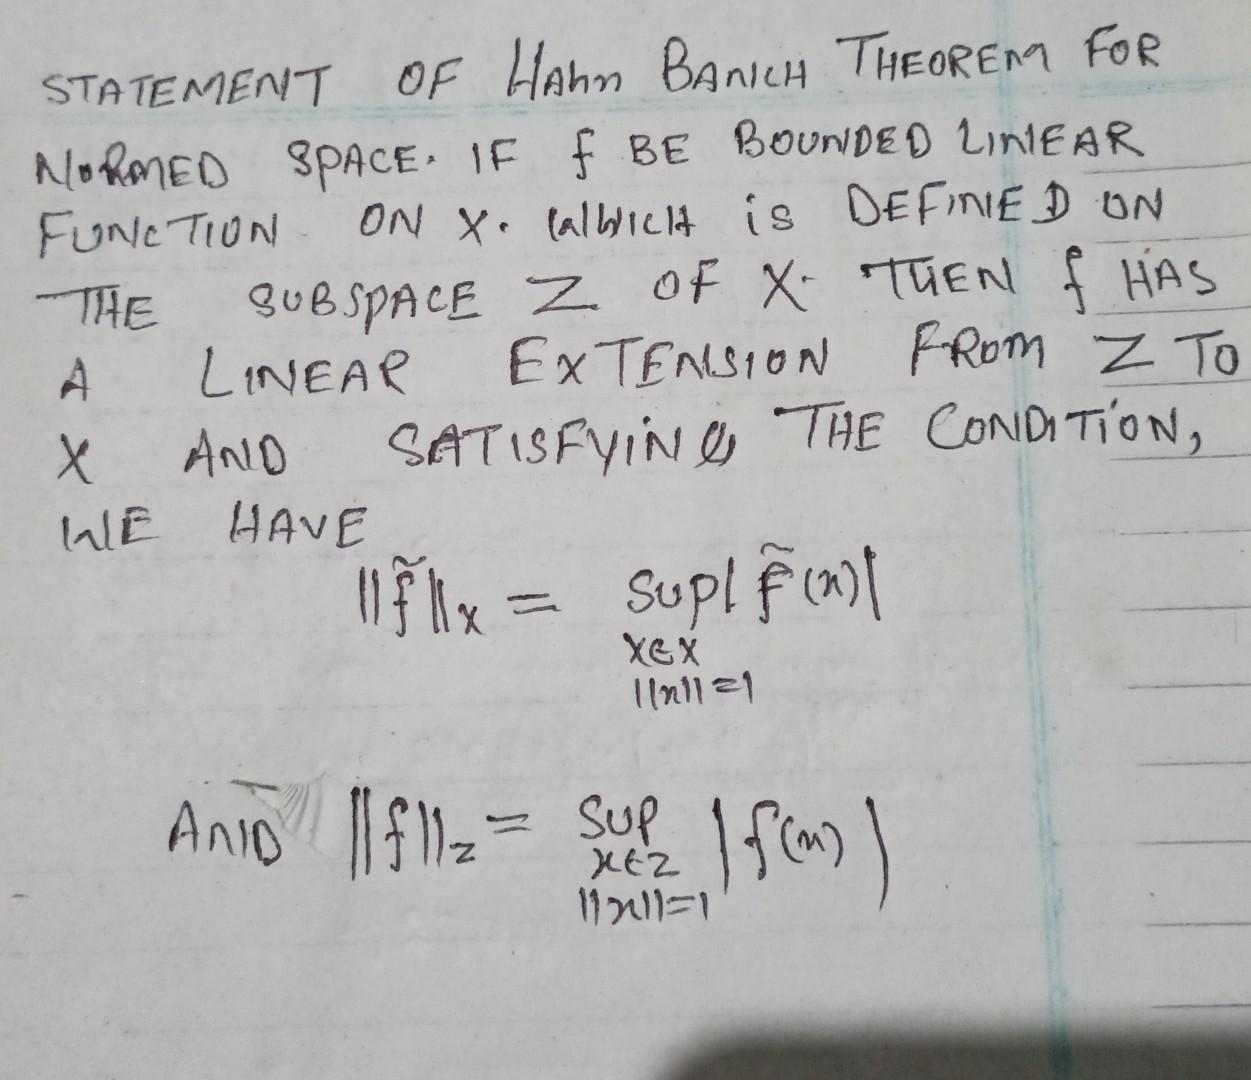 STATEMENT OF HAhn BANICH THEOREM FOR
NORMED SPACE. IF f BE BOUNDED LINEAR
FUNCTION ON X. WHICH is DEFINED ON
THE SUBSPACE Z OF X. THEN f HAS
A LINEAR EXTENSION FROM Z TO
X AND SATISFYING THE CONDITION,
WE HAVE
||f̃||ₓ = Sup| f̃(x)|
X∈X
||x||=1
AND ||f||z = SUP |f(x)|
x∈Z
||x||=1